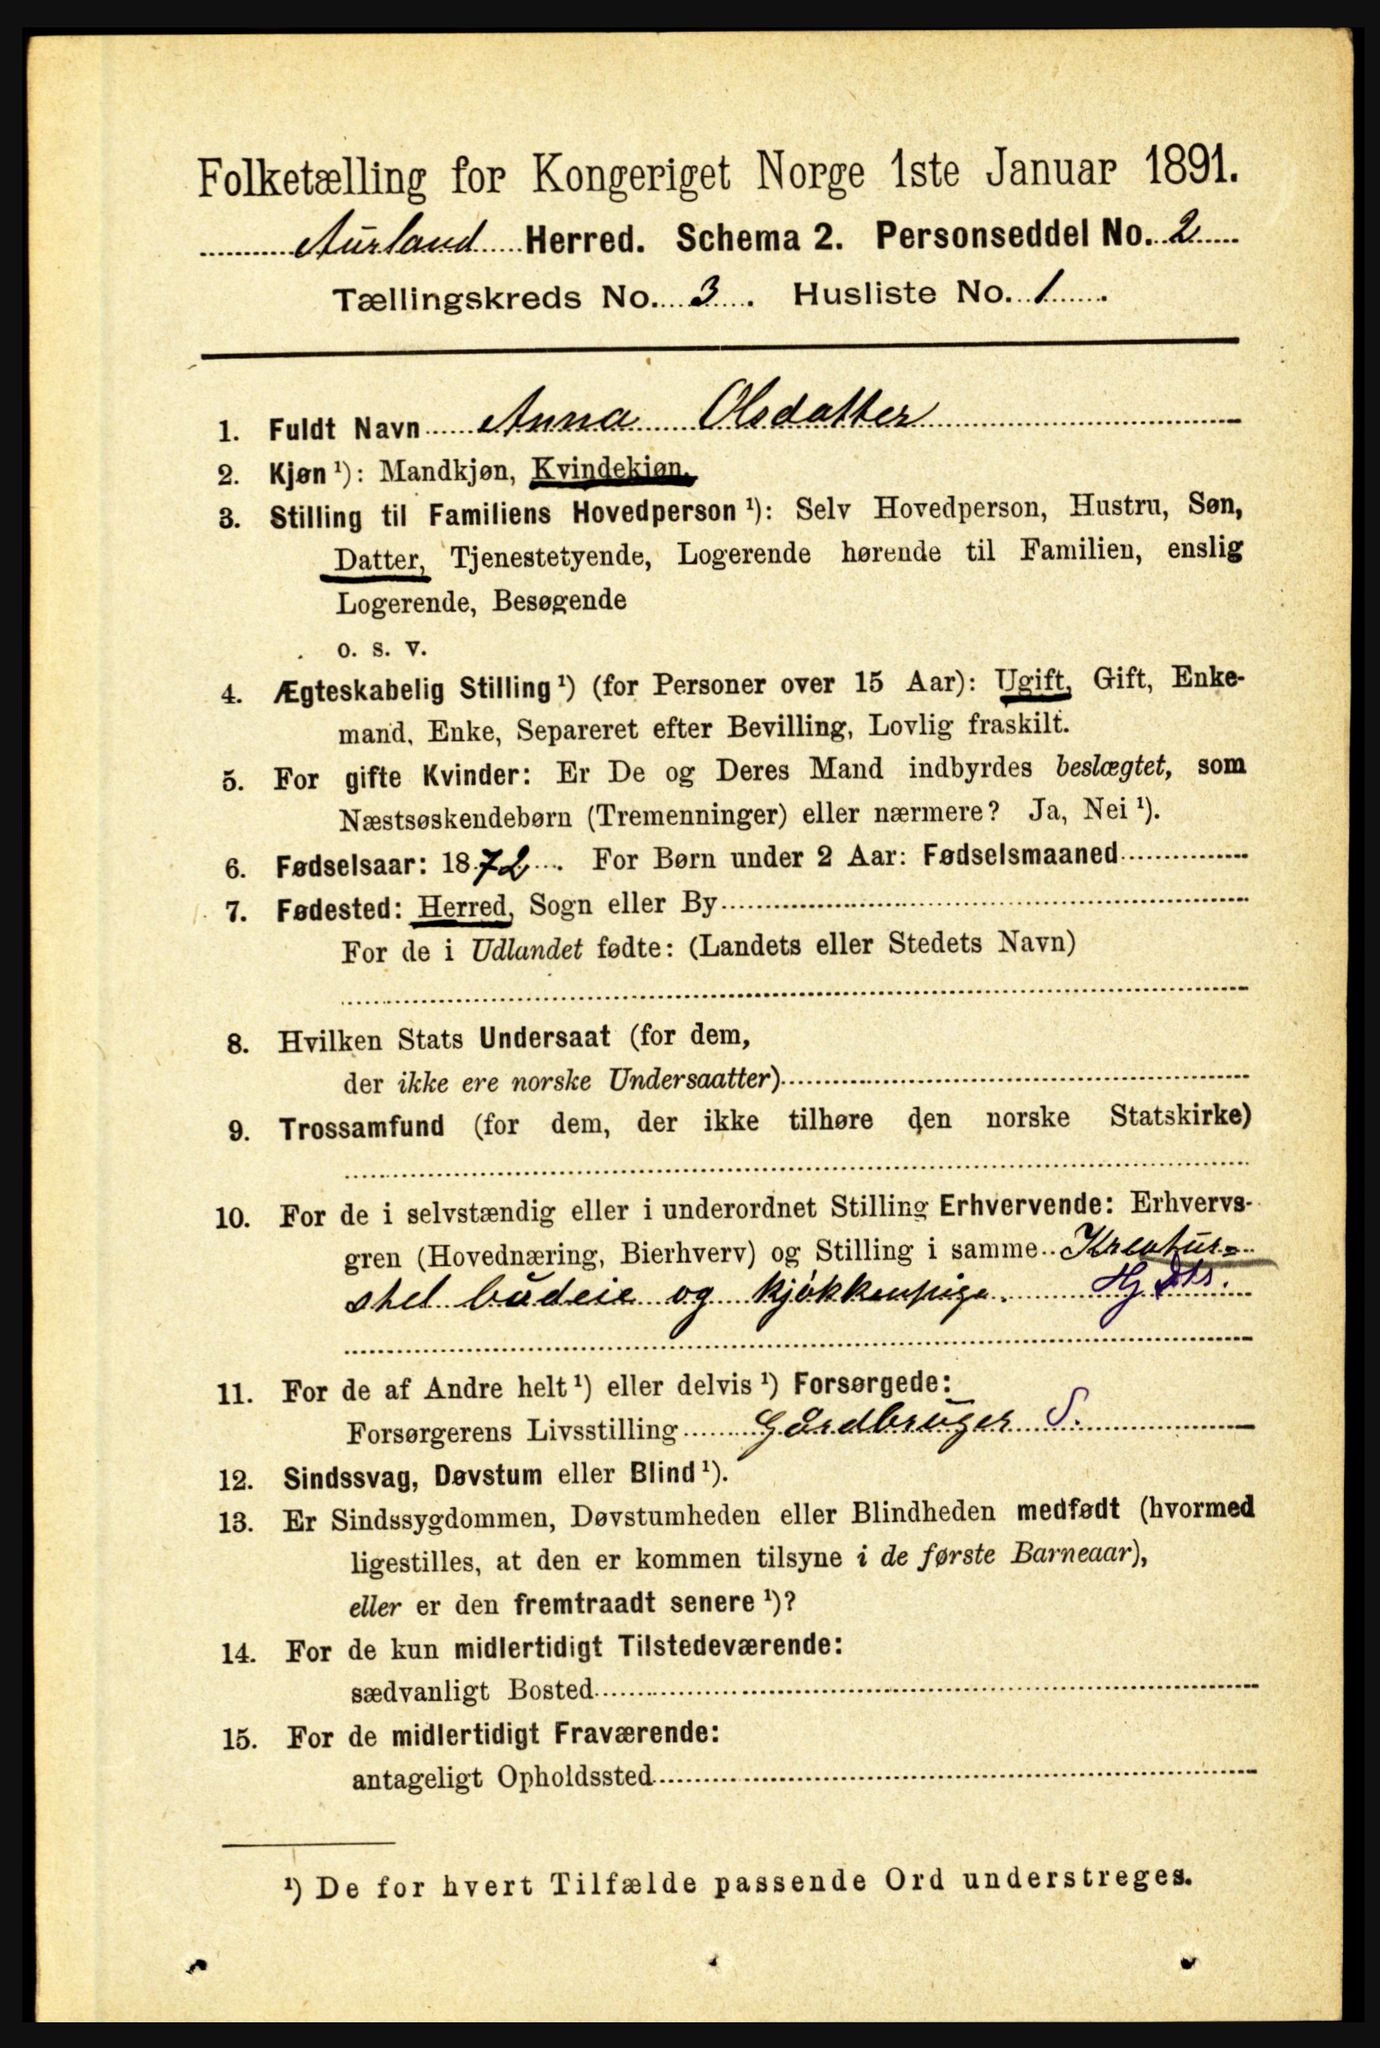 Folketælling for Kongeriget Norge 1ste Januar 1891.
Aurland Herred. Schema 2. Personseddel No. 2
Tællingskreds No. 3. Husliste No. 1.
1. Fuldt Navn Anna Olsdatter
2. Kjøn ¹): Mandkjøn, Kvindekjøn.
3. Stilling til Familiens Hovedperson ¹): Selv Hovedperson, Hustru, Søn,
Datter, Tjenestetyende, Logerende hørende til Familien, enslig
Logerende, Besøgende
o. s. v.
4. Ægteskabelig Stilling ¹) (for Personer over 15 Aar): Ugift, Gift, Enke-
mand, Enke, Separeret efter Bevilling, Lovlig fraskilt.
5. For gifte Kvinder: Er De og Deres Mand indbyrdes beslægtet, som
Næstsøskendebørn (Tremenninger) eller nærmere? Ja, Nei ¹).
6. Fødselsaar: 1872. For Børn under 2 Aar: Fødselsmaaned
7. Fødested: Herred, Sogn eller By
For de i Udlandet fødte: (Landets eller Stedets Navn)
8. Hvilken Stats Undersaat (for dem,
der ikke ere norske Undersaatter)
9. Trossamfund (for dem, der ikke tilhøre den norske Statskirke)
10. For de i selvstændig eller i underordnet Stilling Erhvervende: Erhvervs-
gren (Hovednæring, Bierhverv) og Stilling i samme Kreatur-
stel budeie og kjøkkenpige. Hj
11. For de af Andre helt ¹) eller delvis ¹) Forsørgede:
Forsørgerens Livsstilling Gårdbruger S.
12. Sindssvag, Døvstum eller Blind ¹).
13. Er Sindssygdommen, Døvstumheden eller Blindheden medfødt (hvormed
ligestilles, at den er kommen tilsyne i de første Barneaar),
eller er den fremtraadt senere ¹)?
14. For de kun midlertidigt Tilstedeværende:
sædvanligt Bosted
15. For de midlertidigt Fraværende:
antageligt Opholdssted
¹) De for hvert Tilfælde passende Ord understreges.